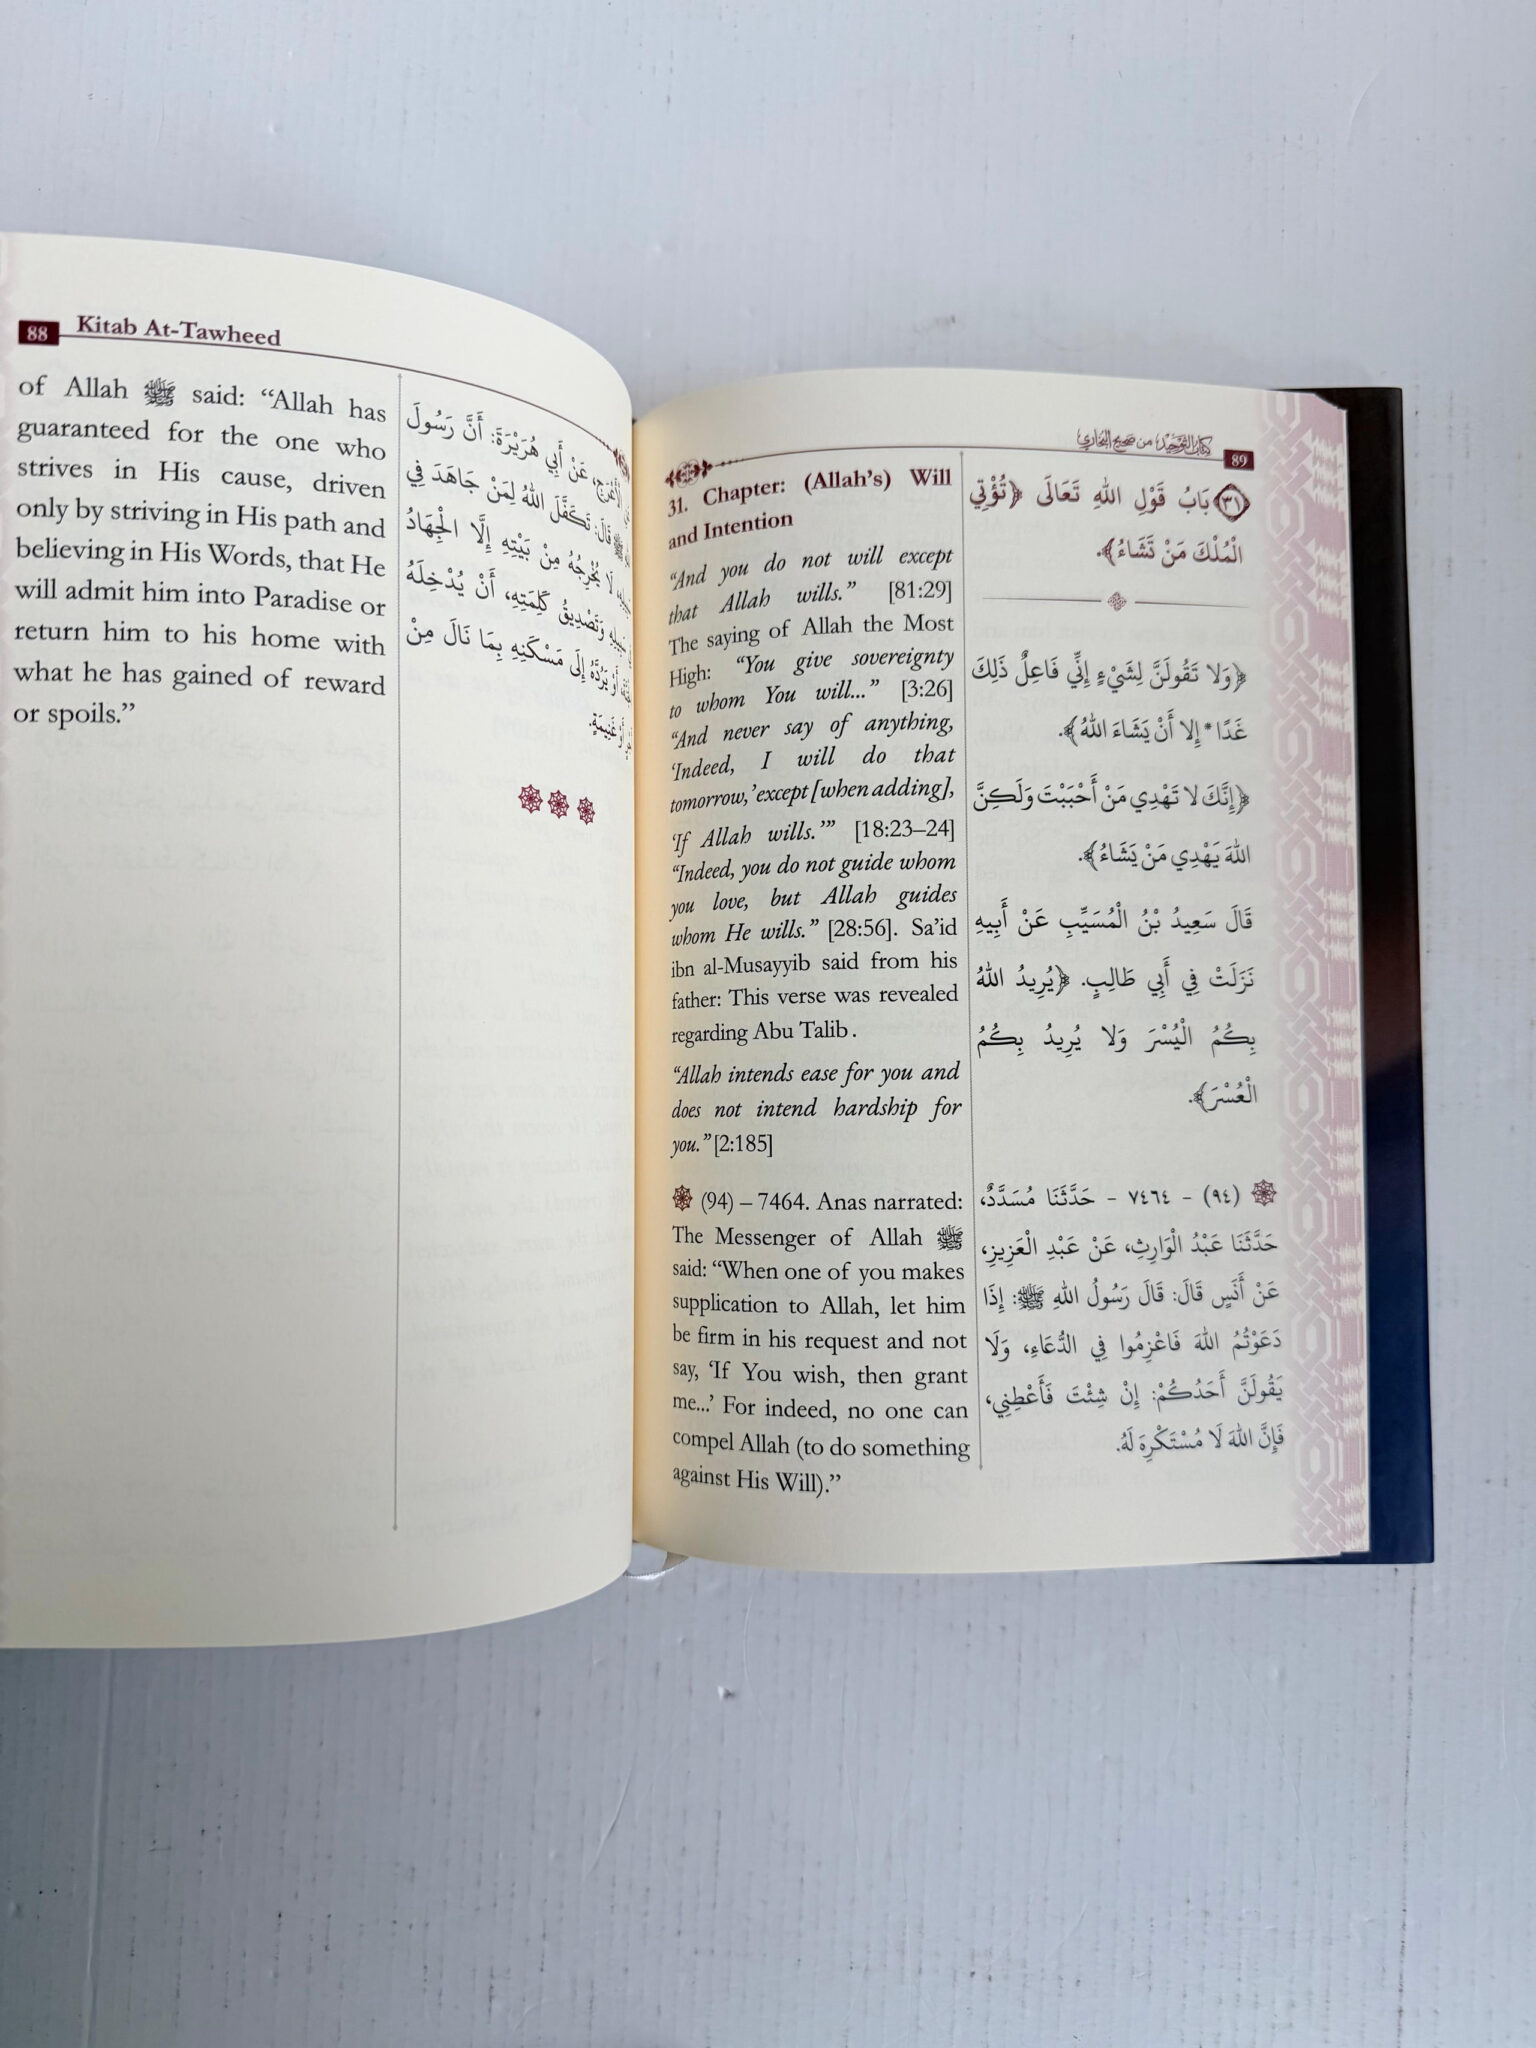 88 Kitab At-Tawheed
of Allah ﷺ said: “Allah has
guaranteed for the one who
strives in His cause, driven
only by striving in His path and
believing in His Words, that He
will admit him into Paradise or
return him to his home with
what he has gained of reward
or spoils.”
عَنْ أَبِي هُرَيْرَةَ: أَنَّ رَسُولَ
قَالَ: تَكَفَّلَ اللهُ لِمَنْ جَاهَدَ فِي
لَا يُخْرِجُهُ مِنْ بَيْتِهِ إِلَّا الْجِهَادُ
وَتَصْدِيقُ كَلِمَتِهِ، أَنْ يُدْخِلَهُ
أَوْ يَرُدَّهُ إِلَى مَسْكَنِهِ بِمَا نَالَ مِنْ
أَوْ غَنِيمَةٍ.
كتاب التوحيد من صحيح البخاري 89
31. Chapter: (Allah’s) Will
and Intention
“And you do not will except
that Allah wills.” [81:29]
The saying of Allah the Most
High: “You give sovereignty
to whom You will...” [3:26]
“And never say of anything,
‘Indeed, I will do that
tomorrow,’ except [when adding],
‘If Allah wills.’” [18:23–24]
“Indeed, you do not guide whom
you love, but Allah guides
whom He wills.” [28:56]. Sa’id
ibn al-Musayyib said from his
father: This verse was revealed
regarding Abu Talib.
“Allah intends ease for you and
does not intend hardship for
you.” [2:185]
(94) – 7464. Anas narrated:
The Messenger of Allah ﷺ
said: “When one of you makes
supplication to Allah, let him
be firm in his request and not
say, ‘If You wish, then grant
me...’ For indeed, no one can
compel Allah (to do something
against His Will).”
٣١ بَابُ قَوْلِ اللهِ تَعَالَى ﴿تُؤْتِي
الْمُلْكَ مَنْ تَشَاءُ﴾.
﴿وَلا تَقُولَنَّ لِشَيْءٍ إِنِّي فَاعِلٌ ذَلِكَ
غَدًا * إِلا أَنْ يَشَاءَ اللهُ﴾.
﴿إِنَّكَ لا تَهْدِي مَنْ أَحْبَبْتَ وَلَكِنَّ
اللهَ يَهْدِي مَنْ يَشَاءُ﴾.
قَالَ سَعِيدُ بْنُ الْمُسَيِّبِ عَنْ أَبِيهِ
نَزَلَتْ فِي أَبِي طَالِبٍ. ﴿يُرِيدُ اللهُ
بِكُمُ الْيُسْرَ وَلا يُرِيدُ بِكُمُ
الْعُسْرَ﴾.
(٩٤) - ٧٤٦٤ - حَدَّثَنَا مُسَدَّدٌ،
حَدَّثَنَا عَبْدُ الْوَارِثِ، عَنْ عَبْدِ الْعَزِيزِ،
عَنْ أَنَسٍ قَالَ: قَالَ رَسُولُ اللهِ ﷺ: إِذَا
دَعَوْتُمُ اللهَ فَاعْزِمُوا فِي الدُّعَاءِ، وَلَا
يَقُولَنَّ أَحَدُكُمْ: إِنْ شِئْتَ فَأَعْطِنِي،
فَإِنَّ اللهَ لَا مُسْتَكْرِهَ لَهُ.